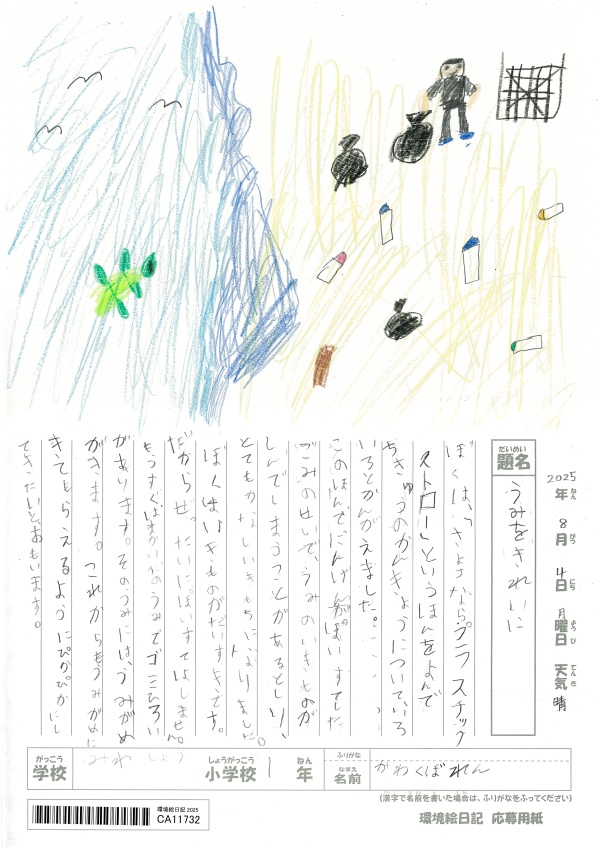 2025年 8月 4日 月曜日 天気 晴
ねん がつ にち ようび てんき
だいめい
題名
うみをきれいに
ぼくは、「さよならプラスチック
ストロー」というほんをよんで
ちきゅうのかんきょうについていろ
いろとかんがえました。
このほんでにんげんがぽいすてした
ごみのせいで、うみのいきものが
しんでしまうことがあるとしり、
とてもかなしいきもちになりました。
ぼくはいきものがだいすきです。
だからぜったいにぽいすてはしません。
もうすぐ うみでゴミひろい
があります。そのうみには、うみがめ
がきます。これからもうみがめに
きてもらえるようにぴかぴかにし
てきたいとおもいます。
がっこう
学校
しょうがっこう
小学校
1
ねん
年
ふりがな
なまえ
名前
かわくぼれん
(漢字で名前を書いた場合は、ふりがなをふってください)
環境絵日記2025
CA11732
環境絵日記 応募用紙